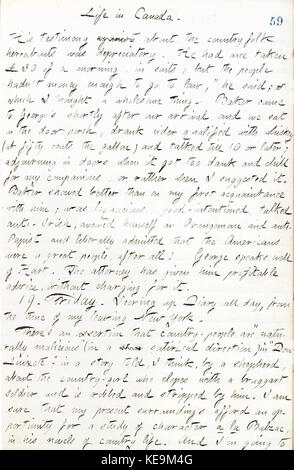 Life in Canada.
59
His testimony about the country folk
hereabout was depreciatory. He had once taken
£30 of a morning, in suits; but the people
hadn't money enough to go to law, "he said; a
which I thought a wholesome thing. Baker came
to George's shortly after our arrival and we sat
in the door porch, drank cider qualified with whiskey
(at fifty cents the gallon) and talked till 10 or later;
adjourning in doors when it got too dank and chill
for my companions or rather when I suggested it.
Baker showed better than on my first acquaintance
with him; was loquacious, good-intentioned talked
anti-Irish, avowed himself an Orangeman and anti-
Papist and liberally admitted that the Americans
were a great people after all! George speaks well
of Hart. The attorney has given him profitable
advice, without charging for it.
19. Friday. Writing up Diary all day, from
the time of my leaving New York.
There's an assertion that country-people are "natu-
rally malicious" (in a satirical direction) in "Don
Quixote": in a story told, I think, by a shepherd,
about the country-girl who elopes with a braggart
soldier and is robbed and stripped by him. I am
sure that my present surroundings afford an op-
portunity for a study of character a la Balzac,
in his novels of country life. And I'm going to
alamy
Image ID: KE9M4G
www.alamy.com